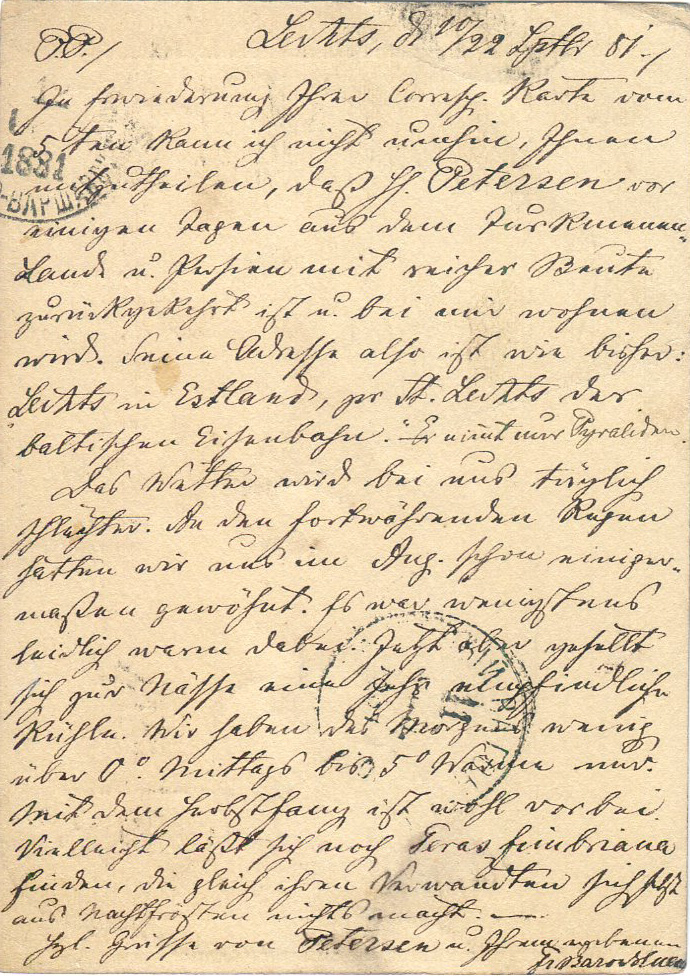 P.P./ Lechts, d 10/22 Sptbr 81./
In Erwiederung Ihrer Corresp. Karte vom
5ten kann ich nicht umhin, Ihnen
mitzutheilen, daß H. Petersen vor
einigen Tagen aus dem Turkmenen-
Lande u. Persien mit reicher Beute
zurückgekehrt ist u. bei mir wohnen
wird. Seine Adresse also ist wie bisher:
"Lechts in Estland, pr St. Lechts der
baltischen Eisenbahn." Er nimt nur Pyraliden.
Das Wetter wird bei uns täglich
schlechter. An den fortwährenden Regen
hatten wir uns im Aug. schon einiger-
maßen gewöhnt. Es war wenigstens
leidlich warm dabei. Jetzt aber gesellt
sich zur Nässe eine sehr empfindliche
Kühle. Wir haben des Morgens wenig
über 0°. Mittags bis 5° Wärme nur.
Mit dem Herbstfang ist wohl vorbei.
Vielleicht läßt sich noch Teras fimbriana
finden, die gleich ihren Verwandten sich selbst
aus Nachtfrösten nichts macht. —
Hzl. Grüsse von Petersen u. Ihrem ergebenen
1881